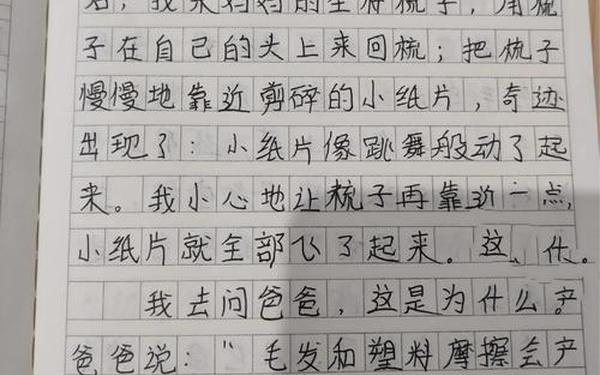 我来妈妈的生将梳子，用梳
子在自己的头上来回梳；把梳子
慢慢地靠近剪碎的小纸片，奇迹
出现了：小纸片像跳舞般动了起
来。我小心地让梳子再靠近一点，
小纸片就全部飞了起来。这、什。
我去问爸爸，这是为什么？产
爸爸说："毛发和塑料摩擦会产